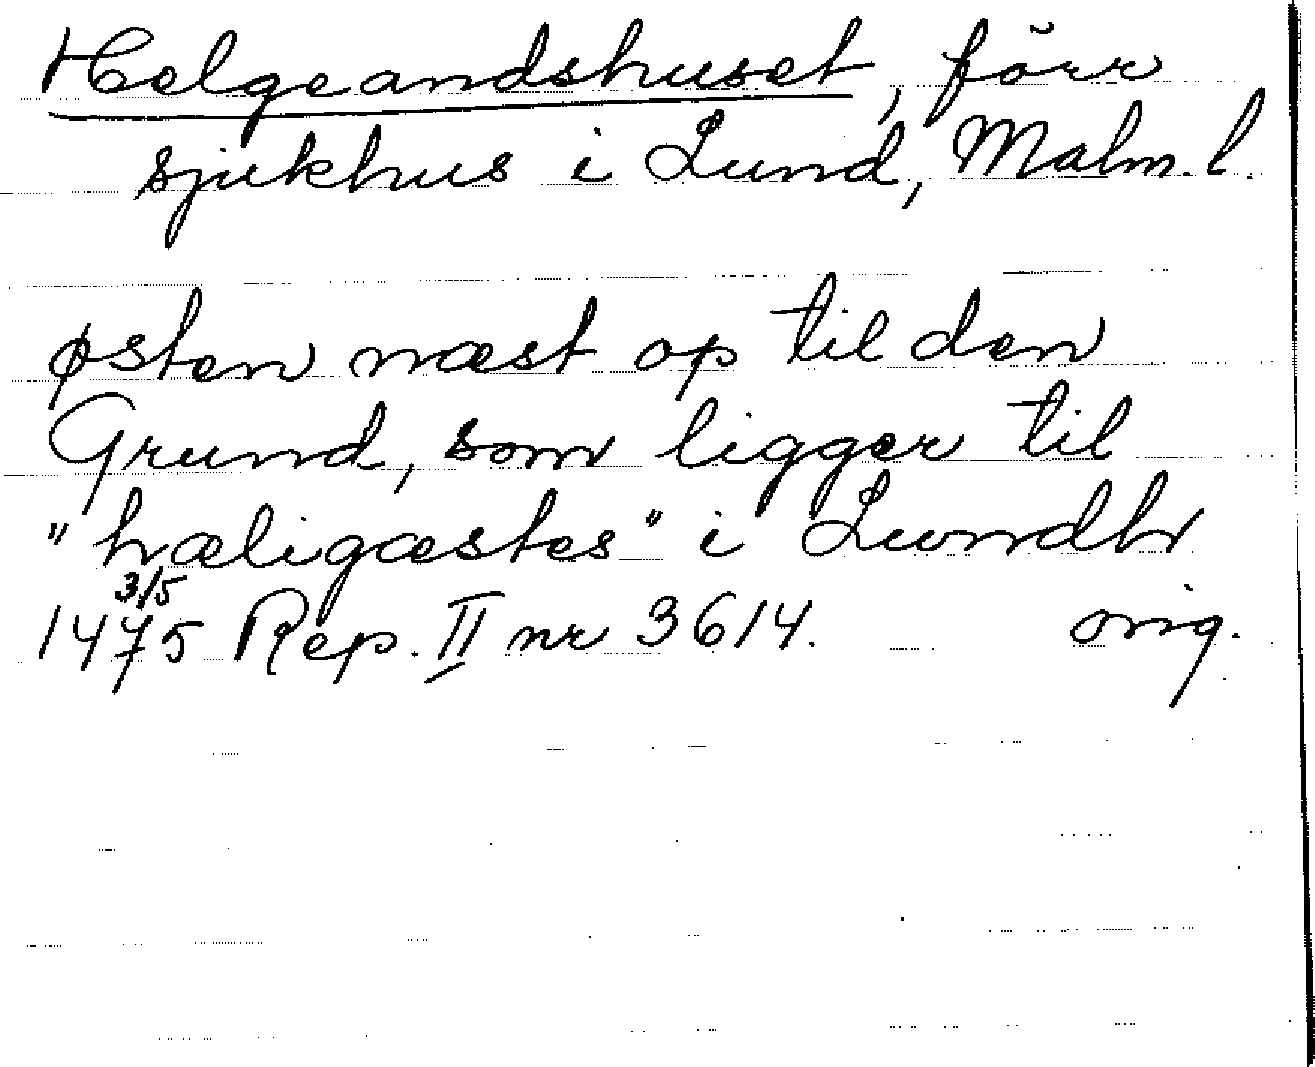 Helgeandshuset, förr
sjukhus i Lund, Malm. l.
østen næst op til den
Grund, som ligger til
"hæligæstes" i Lundh
1475 3/5 Rep. II nr 3614. orig.